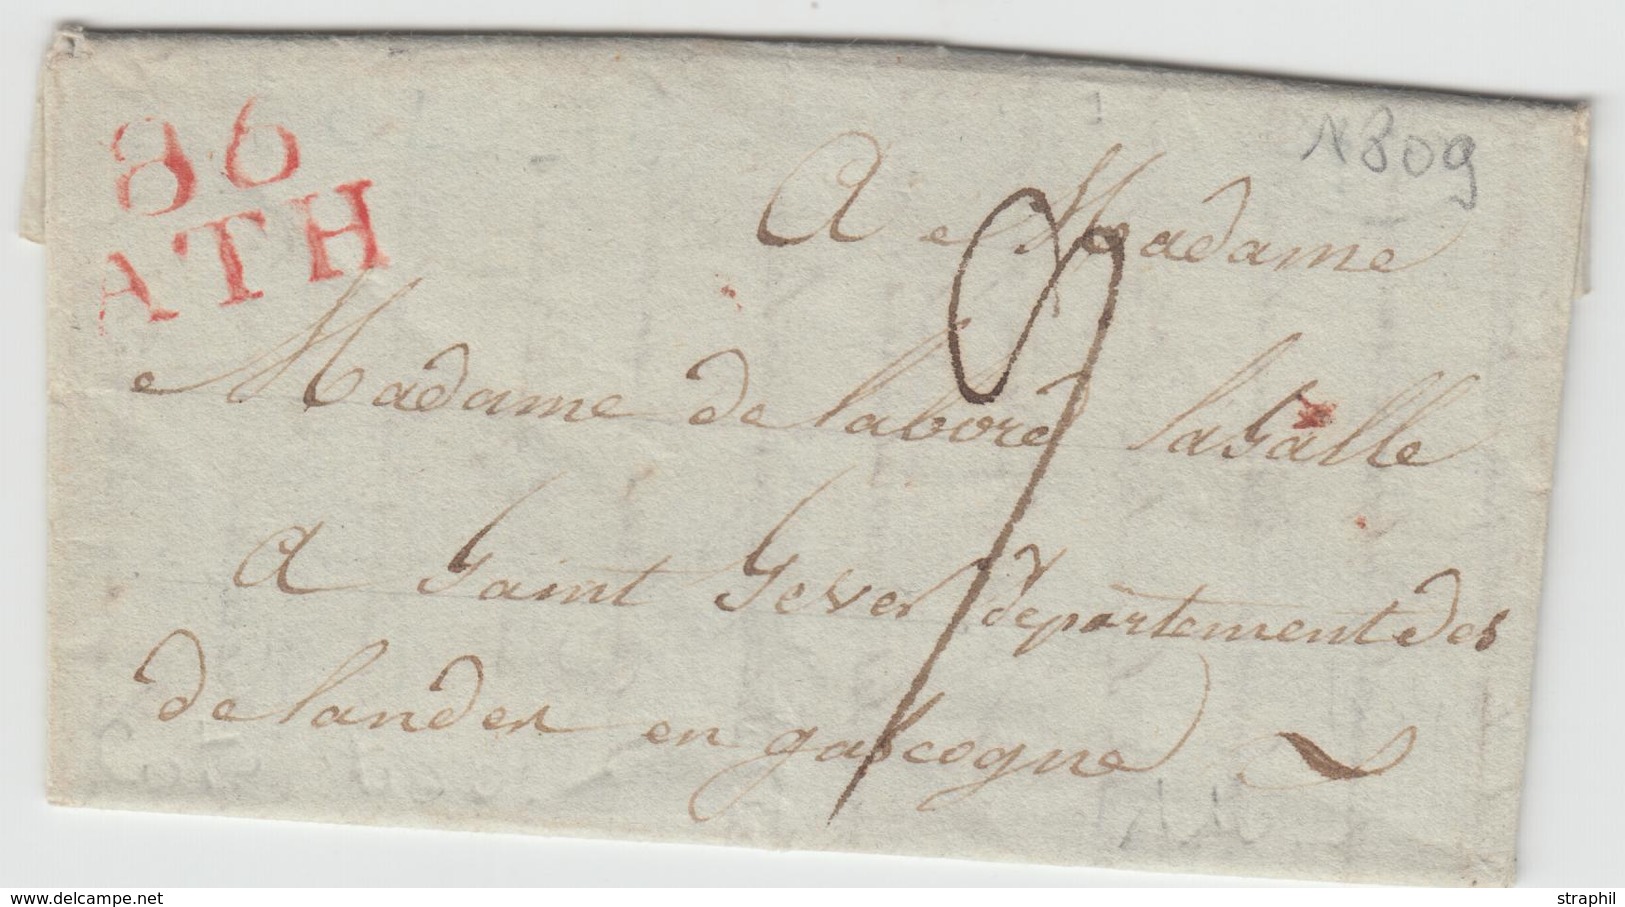 86
ATH
1809
A Madame
Madame de labord lasalle
A Saint Sever departement des
de landes en gascogne
straphil